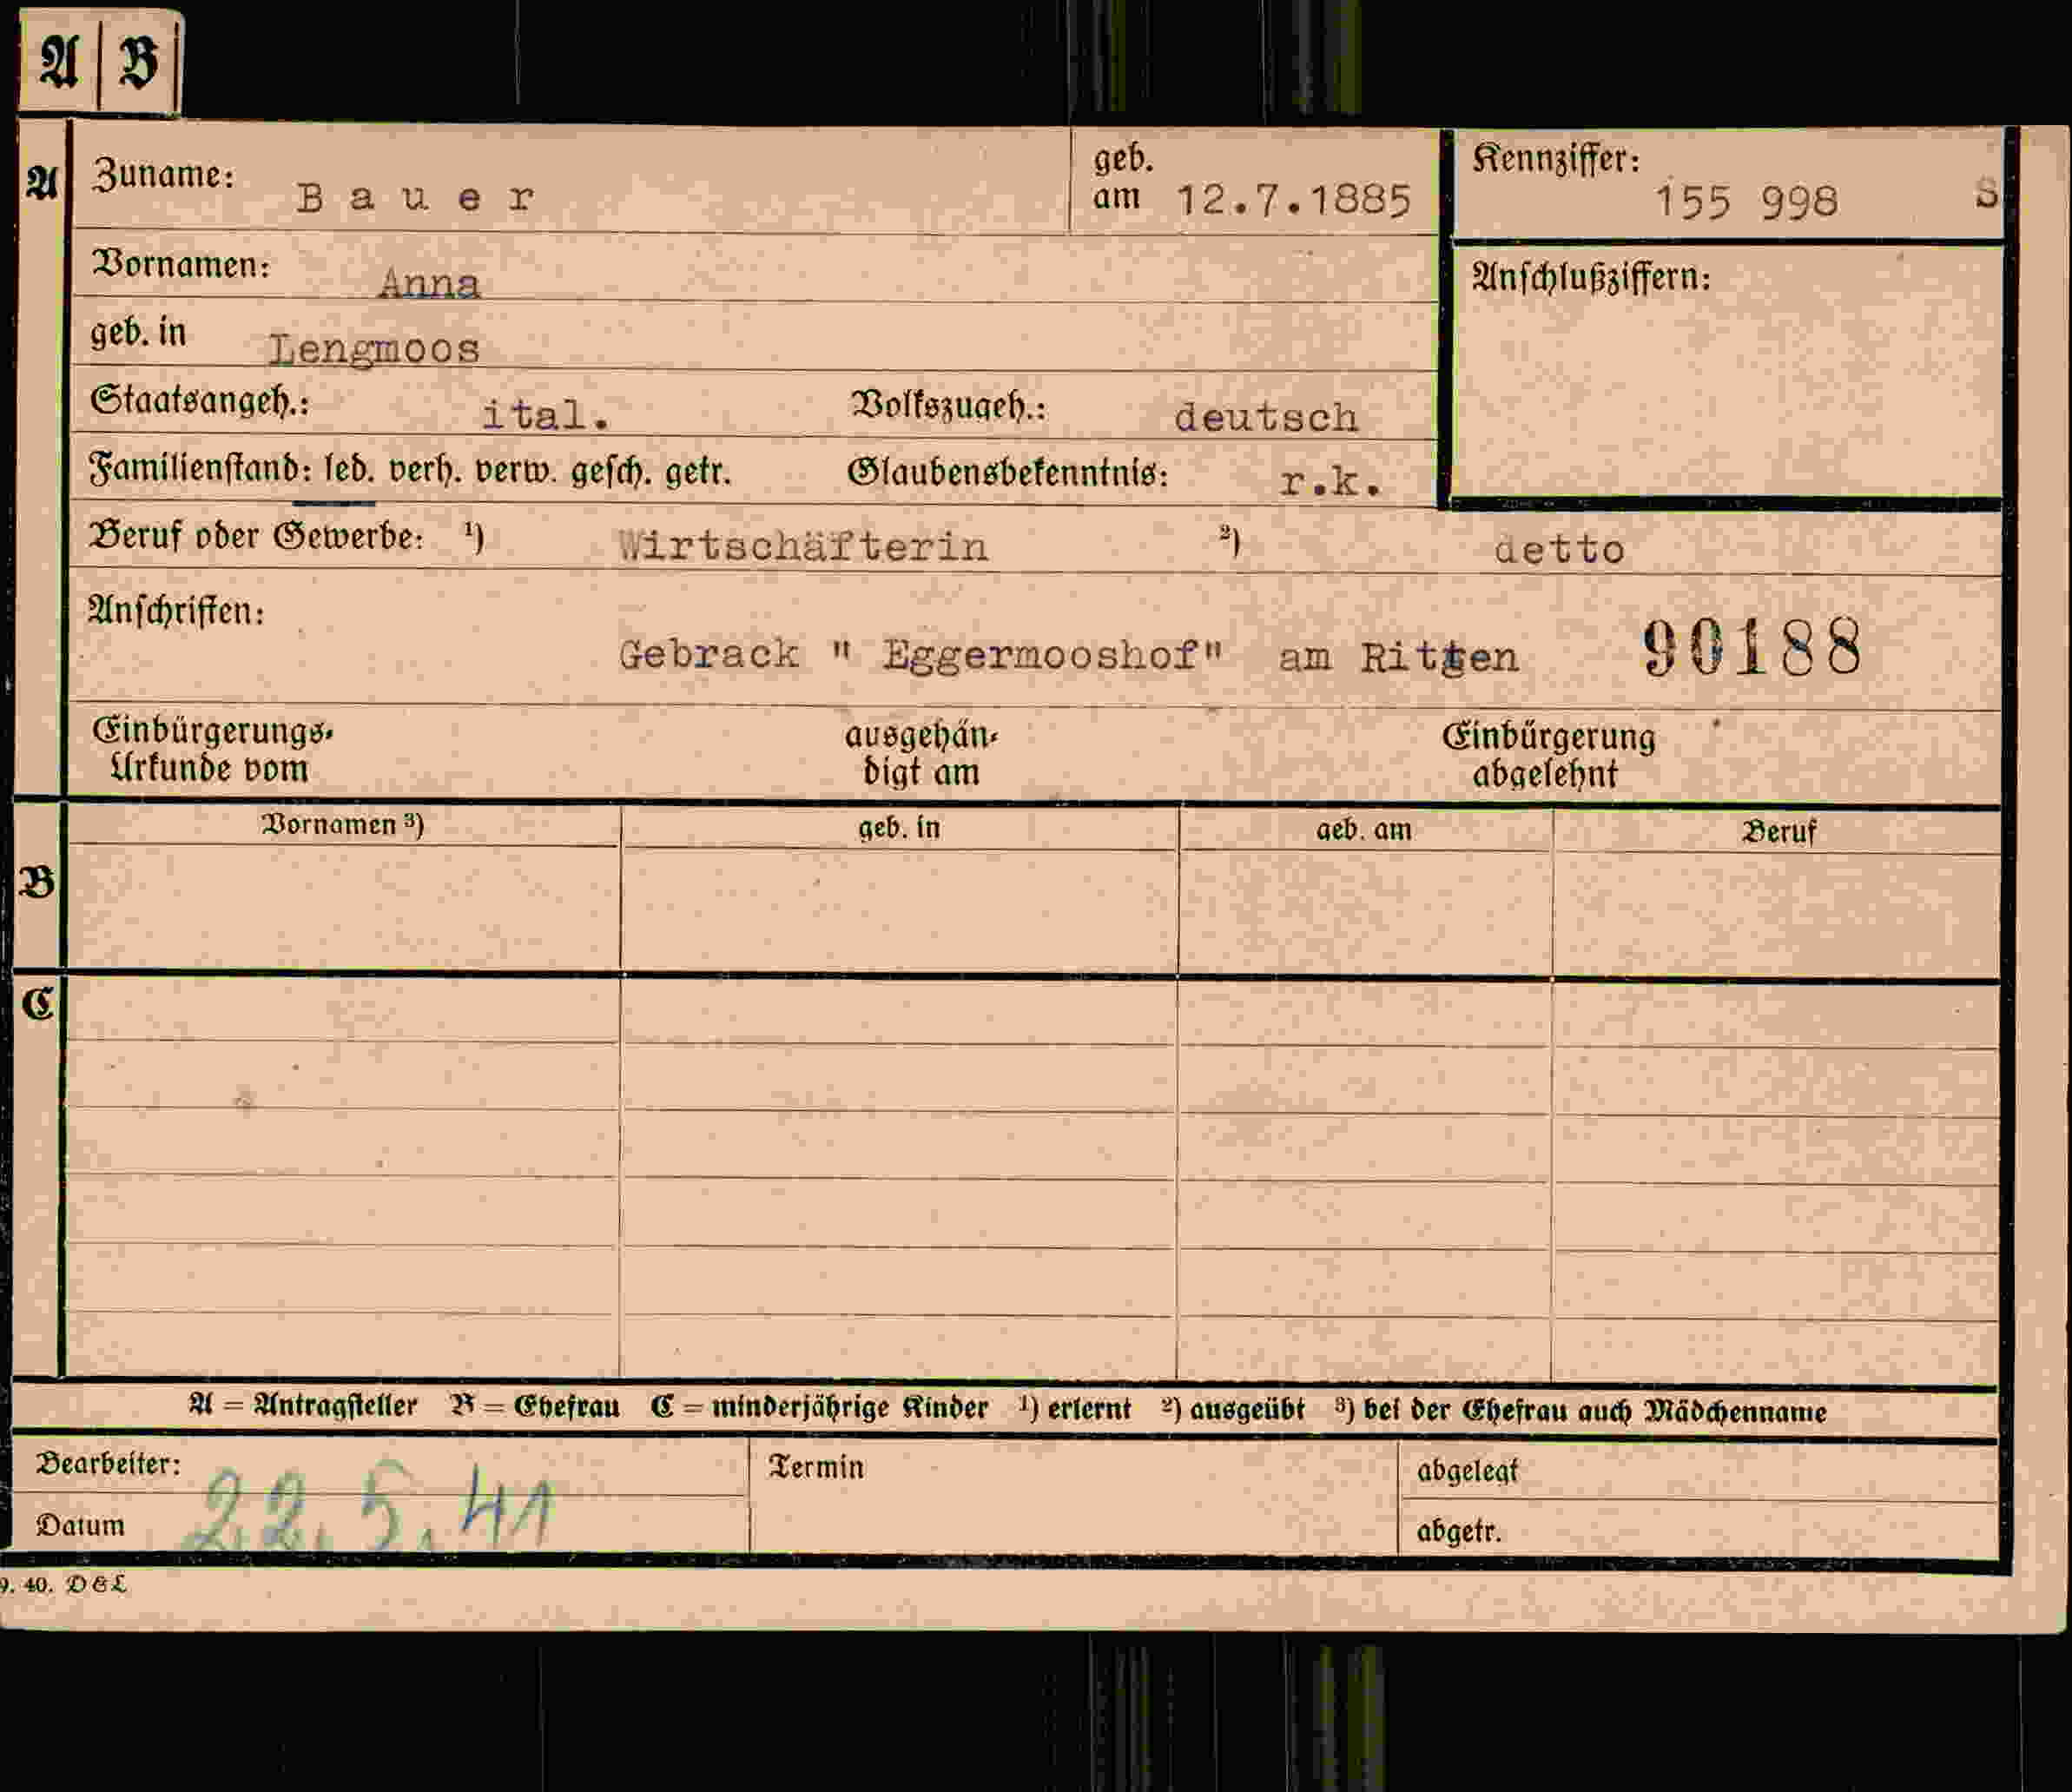 A B
A Zuname: B a u e r geb. am 12.7.1885 Kennziffer: 155 998 S
Vornamen: Anna Anschlußziffern:
geb. in Lengmoos
Staatsangeh.: ital. Volkszugeh.: deutsch
Familienstand: led. verh. verw. gesch. getr. Glaubensbekenntnis: r.k.
Beruf oder Gewerbe: ¹) Wirtschäfterin ²) detto
Anschriften:
Gebrack " Eggermooshof" am Ritten 90188
Einbürgerungs- ausgehän- Einbürgerung
Urkunde vom digt am abgelehnt
Vornamen ³) geb. in geb. am Beruf
B
C
A = Antragsteller B = Ehefrau C = minderjährige Kinder ¹) erlernt ²) ausgeübt ³) bei der Ehefrau auch Mädchenname
Bearbeiter: Termin abgelegt
Datum 22.5.41 abgetr.
9. 40. D & L